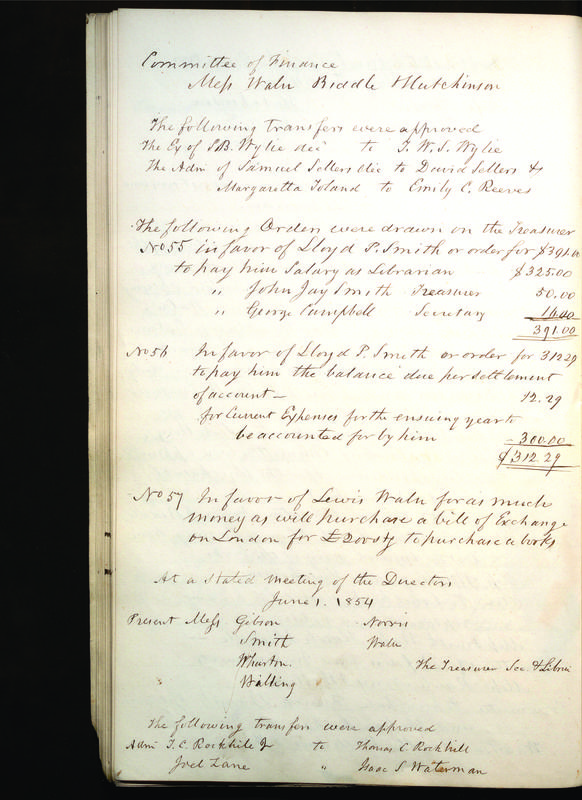 Committee of Finance
Mess Waln Biddle & Hutchinson
The following transfers were approved
The Ex of S.B. Wylie dec to T. W. S. Wylie
The Adm of Samuel Sellers dec to David Sellers &
Margaretta Toland to Emily C. Reeves
The following Orders were drawn on the Treasurer
No 55 in favor of Lloyd P. Smith or order for $391.00
to pay him Salary as Librarian $325.00
" John Jay Smith Treasurer 50.00
" George Campbell Secretary 16.00
391.00
No 56 In favor of Lloyd P. Smith or order for 312.29
to pay him the balance due per settlement
of account — 12.29
for Current Expenses for the ensuing year to
be accounted for by him 300.00
$312.29
No 57 In favor of Lewis Waln for as much
money as will purchase a bill of Exchange
on London for £200 Stg to purchase books
At a Stated Meeting of the Directors
June 1. 1854
Present Mess Gibson Norris
Smith Waln
Wharton. The Treasurer Sec & Librn
Watling
The following transfers were approved
Adm T. C. Rockhill Jr to Thomas C Rockhill
Joel Zane " Isaac S Waterman